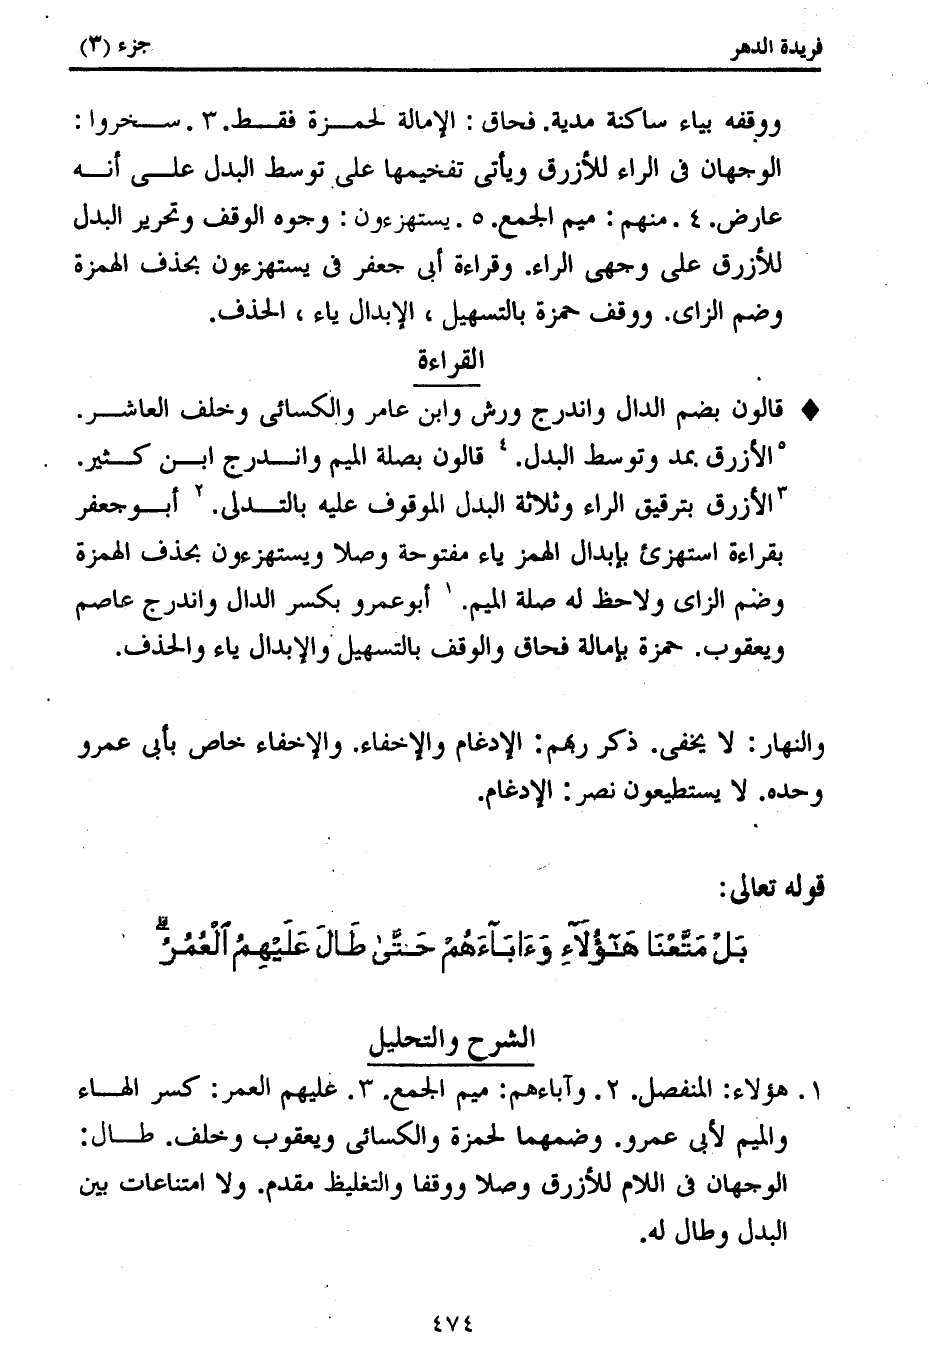 فريدة الدهر
جزء (٣)
ووقفه بياء ساكنة مدية. فحاق : الإمالة لحمزة فقط. ٣ . سخروا :
الوجهان فى الراء للأزرق ويأتى تفخيمها على توسط البدل على أنه
عارض. ٤ . منهم : ميم الجمع. ٥ . يستهزءون : وجوه الوقف وتحرير البدل
للأزرق على وجهى الراء. وقراءة أبى جعفر فى يستهزءون بحذف الهمزة
وضم الزاى. ووقف حمزة بالتسهيل ، الإبدال ياء ، الحذف.
القراءة
♦ قالون بضم الدال واندرج ورش وابن عامر والكسائى وخلف العاشر.
٥ الأزرق بمد وتوسط البدل. ٤ قالون بصلة الميم واندرج ابن كثير.
٣ الأزرق بترقيق الراء وثلاثة البدل الموقوف عليه بالتدلى. ٢ أبو جعفر
بقراءة استهزئ بإبدال الهمز ياء مفتوحة وصلا ويستهزءون بحذف الهمزة
وضم الزاى ولاحظ له صلة الميم. ١ أبوعمرو بكسر الدال واندرج عاصم
ويعقوب. حمزة بإمالة فحاق والوقف بالتسهيل والإبدال ياء والحذف.
والنهار: لا يخفى. ذكر ربهم: الإدغام والإخفاء. والإخفاء خاص بأبى عمرو
وحده. لا يستطيعون نصر: الإدغام.
قوله تعالى:
بَلْ مَتَّعْنَا هَـٰٓؤُلَآءِ وَءَابَآءَهُمْ حَتَّىٰ طَالَ عَلَيْهِمُ ٱلْعُمُرُ ۗ
الشرح والتحليل
١. هؤلاء: المنفصل. ٢. وآباءهم: ميم الجمع. ٣. عليهم العمر: كسر الهاء
والميم لأبى عمرو. وضمهما لحمزة والكسائى ويعقوب وخلف. طال:
الوجهان فى اللام للأزرق وصلا ووقفا والتغليظ مقدم. ولا امتناعات بين
البدل وطال له.
٤٧٤